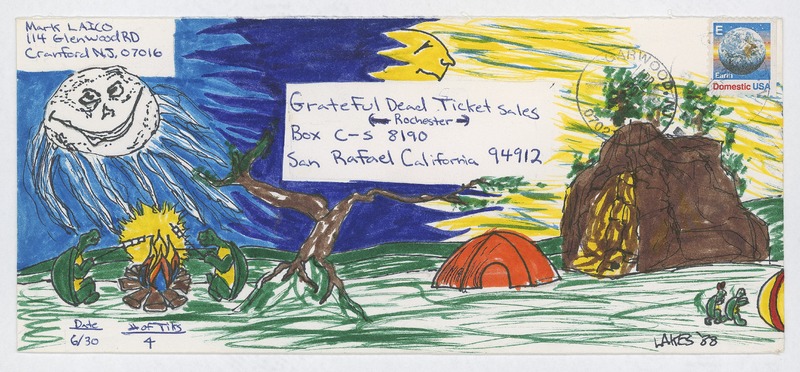 Mark LAICO
114 Glenwood RD
Cranford NJ, 07016
Grateful Dead Ticket Sales
Rochester
Box C-S 8190
San Rafael California 94912
GARWOOD NJ
E
Earth
Domestic USA
Date
6/30
# of Tiks
4
LAKES '88